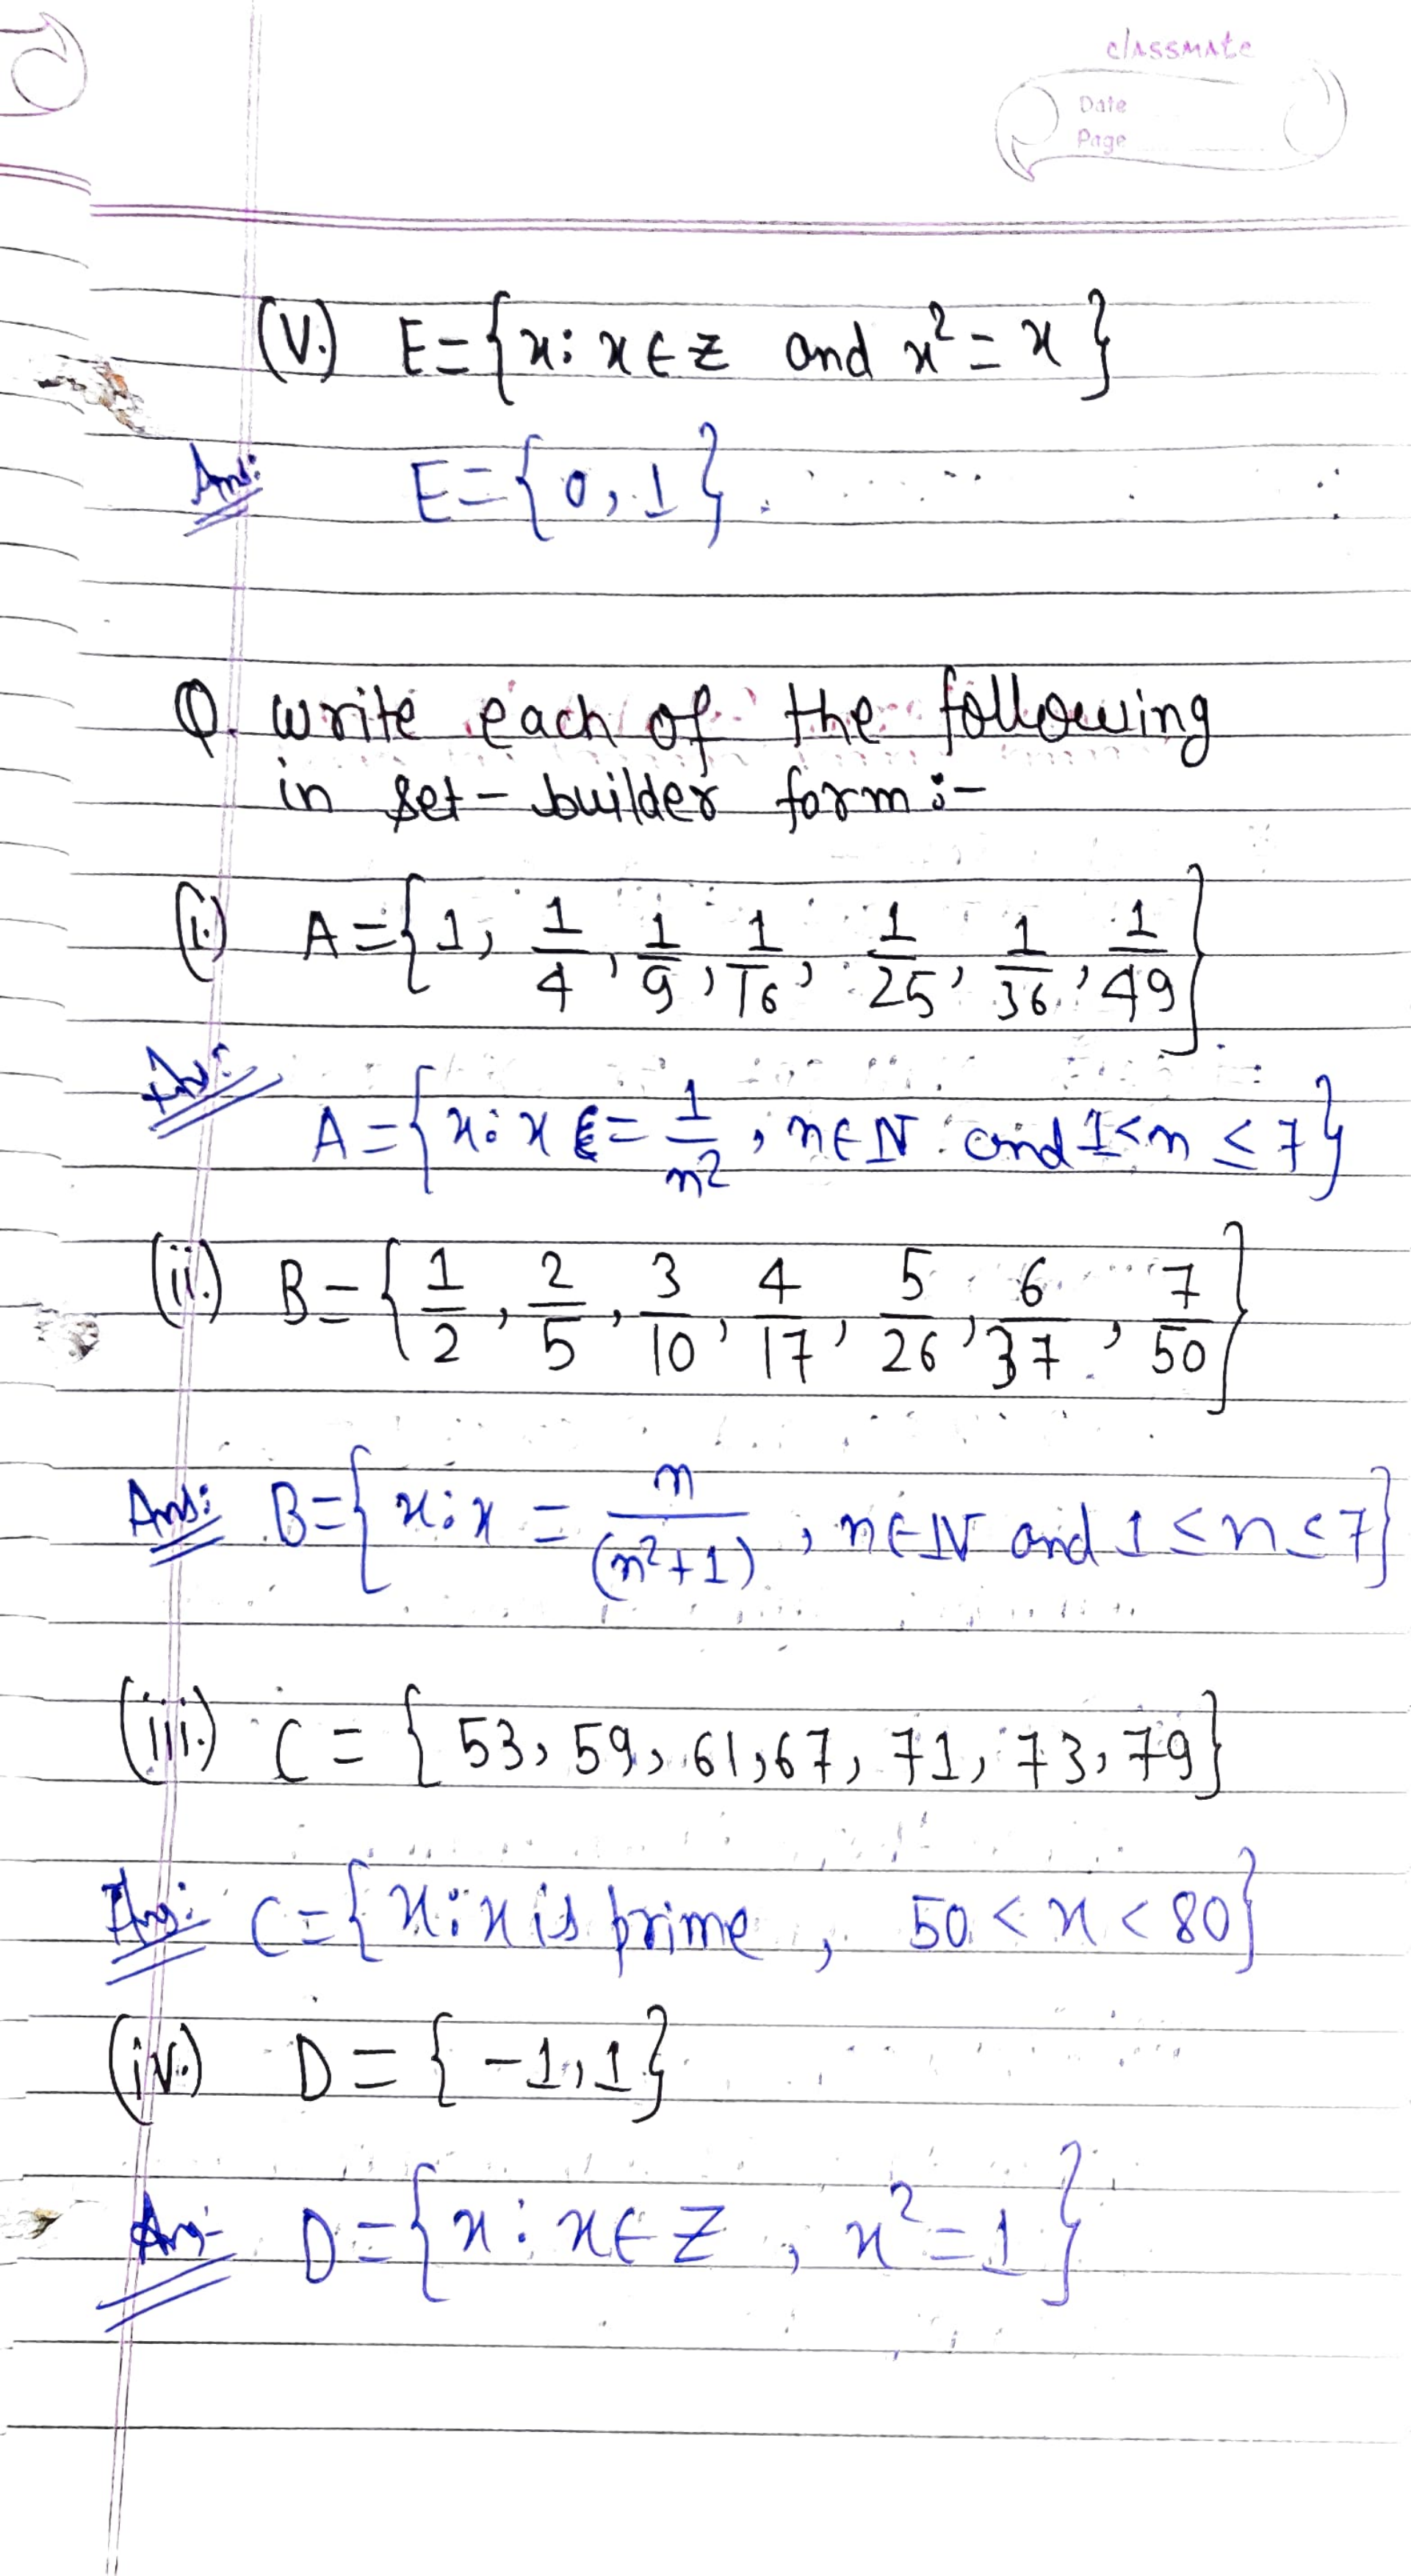 classmate
Date
Page
(V.) E={x: x∈Z and x²=x}
Ans: E={0,1}.
Q. write each of the following
in set-builder form:-
(i.) A={1, 1/4, 1/9, 1/16, 1/25, 1/36, 1/49}
Ans: A={x: x = 1/n², n∈N and 1<n≤7}
(ii.) B={1/2, 2/5, 3/10, 4/17, 5/26, 6/37, 7/50}
Ans: B={x: x = n/(n²+1), n∈N and 1≤n≤7}
(iii.) C={53, 59, 61, 67, 71, 73, 79}
Ans: C={x: x is prime, 50<x<80}
(iv.) D={-1,1}
Ans:- D={x: x∈Z, x²=1}